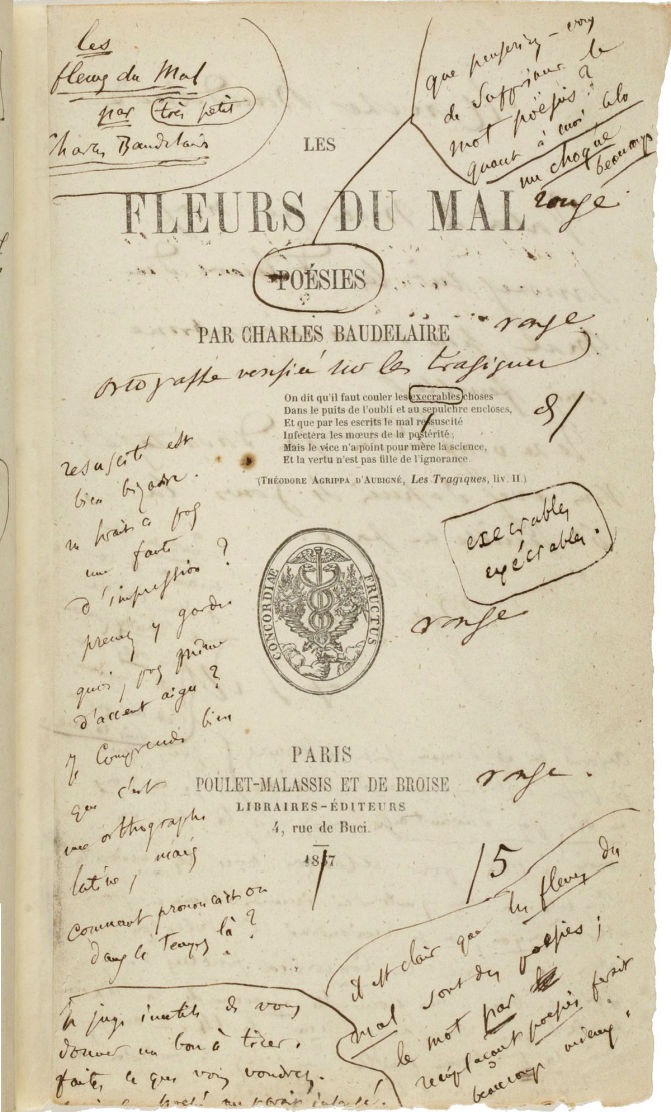 les
fleurs du Mal
par très petit
Charles Baudelaire
que penseriez-vous
de supprimer le
mot poësies ?
quant à moi, cela
me choque
beaucoup
rouge.
LES
FLEURS DU MAL
POÉSIES
PAR CHARLES BAUDELAIRE
rouge
sur les tragiques
On dit qu'il faut couler les execrables choses
Dans le puits de l'oubli et au sepulchre encloses,
Et que par les escrits le mal ressuscité
Infectera les mœurs de la postérité ;
Mais le vice n'a point pour mère la science,
Et la vertu n'est pas fille de l'ignorance.
(THÉODORE AGRIPPA D'AUBIGNÉ, Les Tragiques, liv. II.)
resuscité est
bien bizarre.
ne serait-ce pas
une faute
d'impression ?
prenez y garde.
quoi, pas même
d'accent aigu ?
je comprends bien
que c'est
une orthographe
latine, mais
comment prononçait-on
dans le temps là ?
execrables
exécrables.
CONCORDIÆ FRUCTUS
rouge
PARIS
POULET-MALASSIS ET DE BROISE
rouge.
LIBRAIRES-ÉDITEURS
4, rue de Buci.
1857
/5
il est clair que les fleurs du
mal sont des poësies ;
le mot par
remplaçant poësies ferait
beaucoup mieux.
Je juge inutile de vous
donner un bon à tirer.
faites ce que vous voudrez.